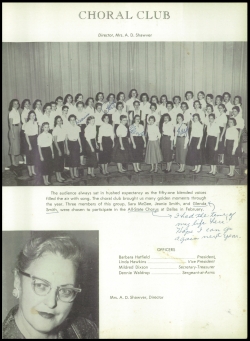 CHORAL CLUB
Director, Mrs. A. D. Skewner
The audience always sat in hushed expectancy as the fifty-nine blended voices
filled the air with song. The choral club brought us many golden moments through
the year. Three members of this group, Sara McGee, Jessie Smith, and Glenda
Smith, were chosen to participate in the All-State Chorus at Dallas in February.
I had the time of
my life here
Hope I can go
again next year
OFFICERS
Barbara Hatfield President,
Linda Hawkins Vice President
Mildred Dixson Secretary-Treasurer
Dennie Waldrop Sergeant-at-Arms
Mrs. A. D. Skewner, Director